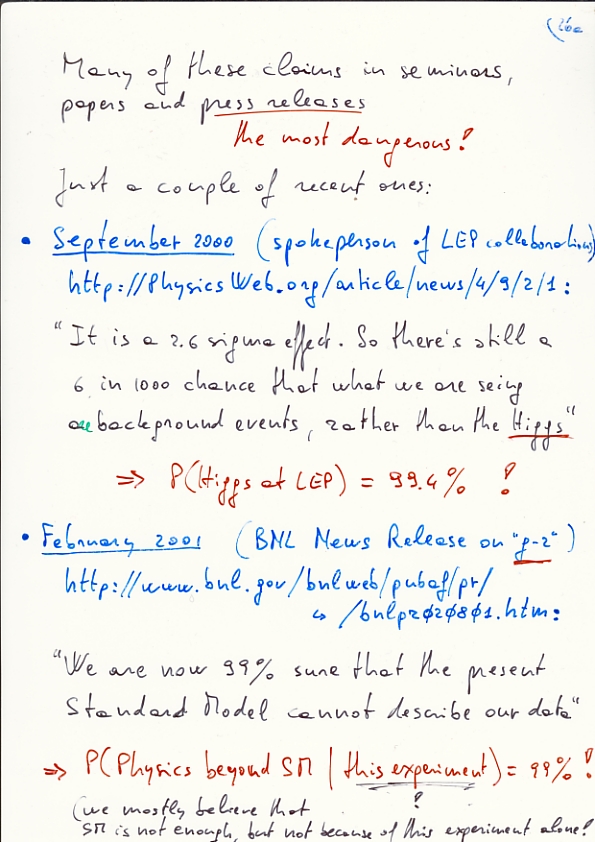 26a
Many of these claims in seminars,
papers and press releases
the most dangerous!
Just a couple of recent ones:
• September 2000 (spokeperson of LEP collaborations)
http://PhysicsWeb.org/article/news/4/9/2/1:
"It is a 2.6 sigma effect. So there's still a
6 in 1000 chance that what we are seing
are background events, rather than the Higgs"
⇒ P(Higgs at LEP) = 99.4% !
• February 2001 (BNL News Release on "g-2")
http://www.bnl.gov/bnlweb/pubaf/pr/
↳ /bnlpr020801.htm:
"We are now 99% sure that the present
Standard Model cannot describe our data"
⇒ P(Physics beyond SM | this experiment) = 99%!
?
(we mostly believe that
SM is not enough, but not because of this experiment alone!